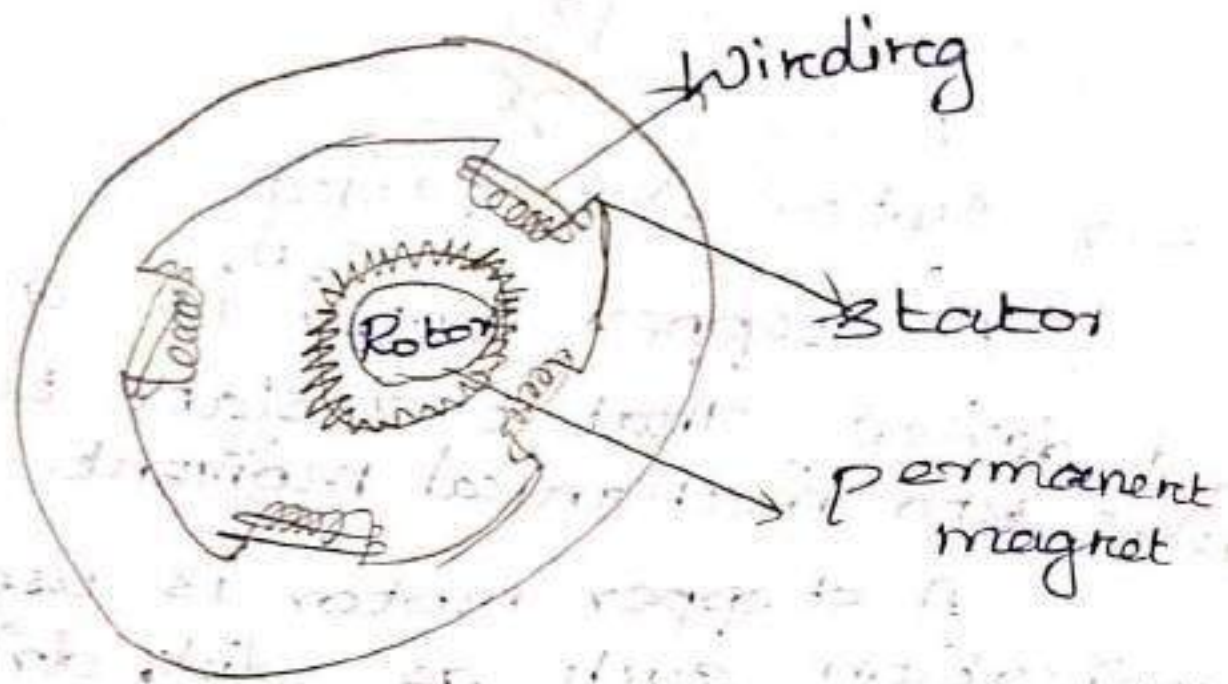 Winding
Rotor
Stator
permanent
magnet